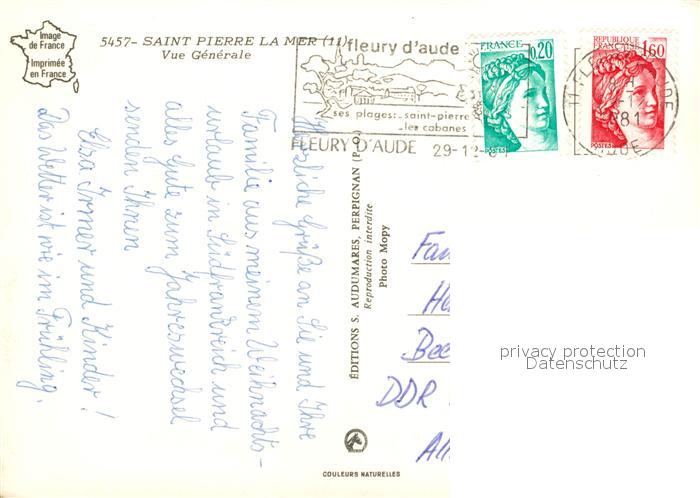 Image
de France
Imprimée
en France
5457- SAINT PIERRE LA MER (11)
Vue Générale
fleury d'aude
ses plages:_saint-pierre
_les cabanes
FLEURY D'AUDE 29-12-81
FRANCE
0,20
POSTES
REPUBLIQUE
FRANCAISE
1,60
POSTES
11-FL
AUDE
Herzliche Grüße an Sie und Ihre
Familie aus meinem Weihnachts-
urlaub in Südfrankreich und
alles Gute zum Jahreswechsel
senden Ihnen
Elsa Irmer und Kinder!
Das Wetter ist wie im Frühling.
ÉDITIONS S. AUDUMARES, PERPIGNAN (P.-O.)
Reproduction interdite
Photo Mopy
Fam
He
Bee
DDR
All
privacy protection
Datenschutz
COULEURS NATURELLES